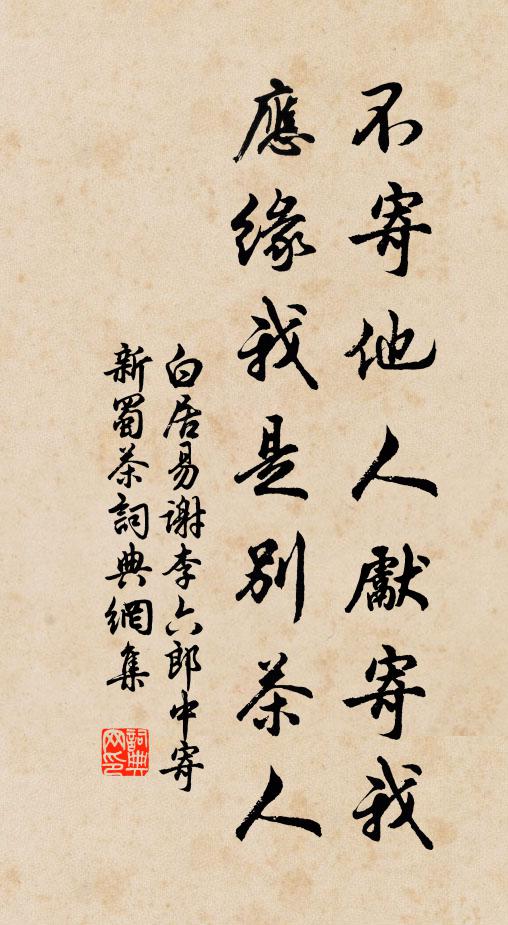 不寄他人獻寄我
應緣我是別茶人
白居易謝李六郎中寄
新蜀茶詞典網集
詞典
网印